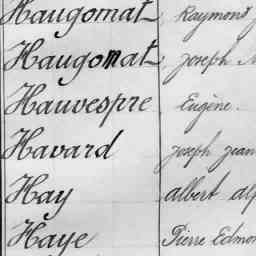 Haugomat, Raymond
Haugomat, Joseph
Hauvespre Eugène.
Havard Joseph Jean
Hay albert
Haye Pierre Edmon